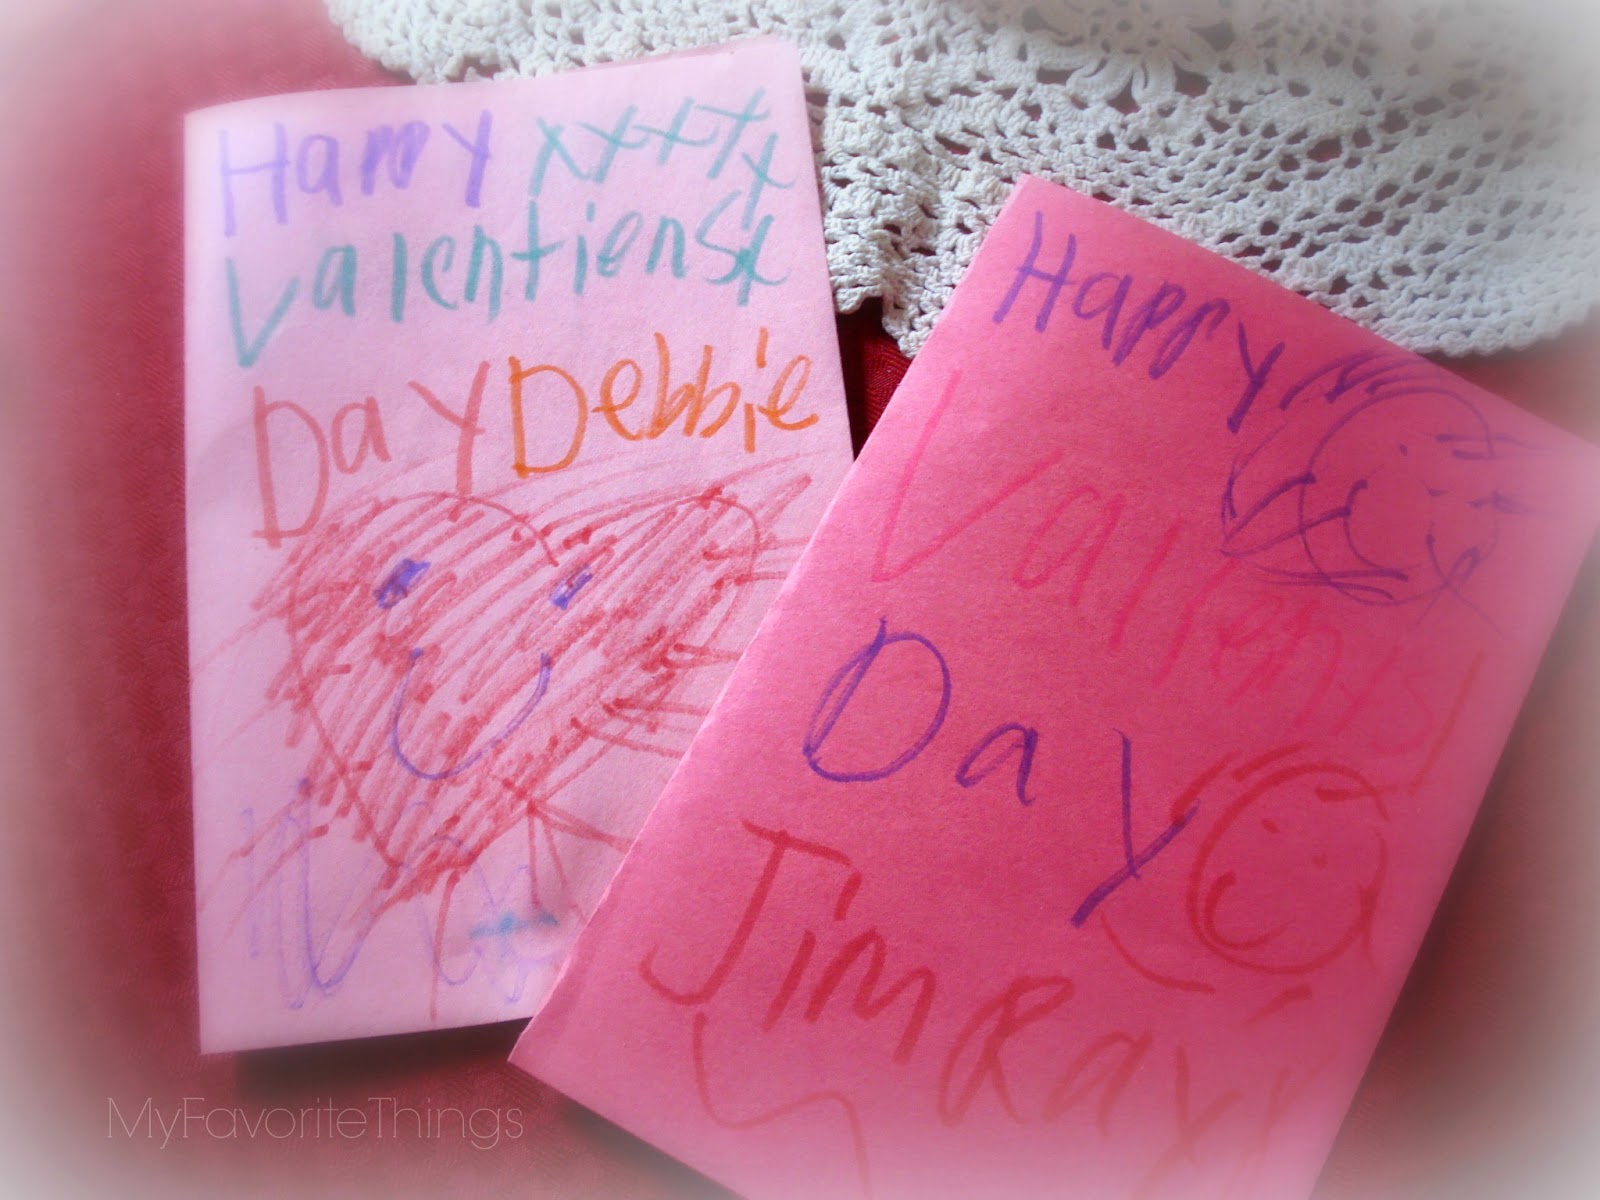 Happy xxxxx
Valentiensx
Day Debbie
Happy
Day
Jim Ray
MyFavoriteThings